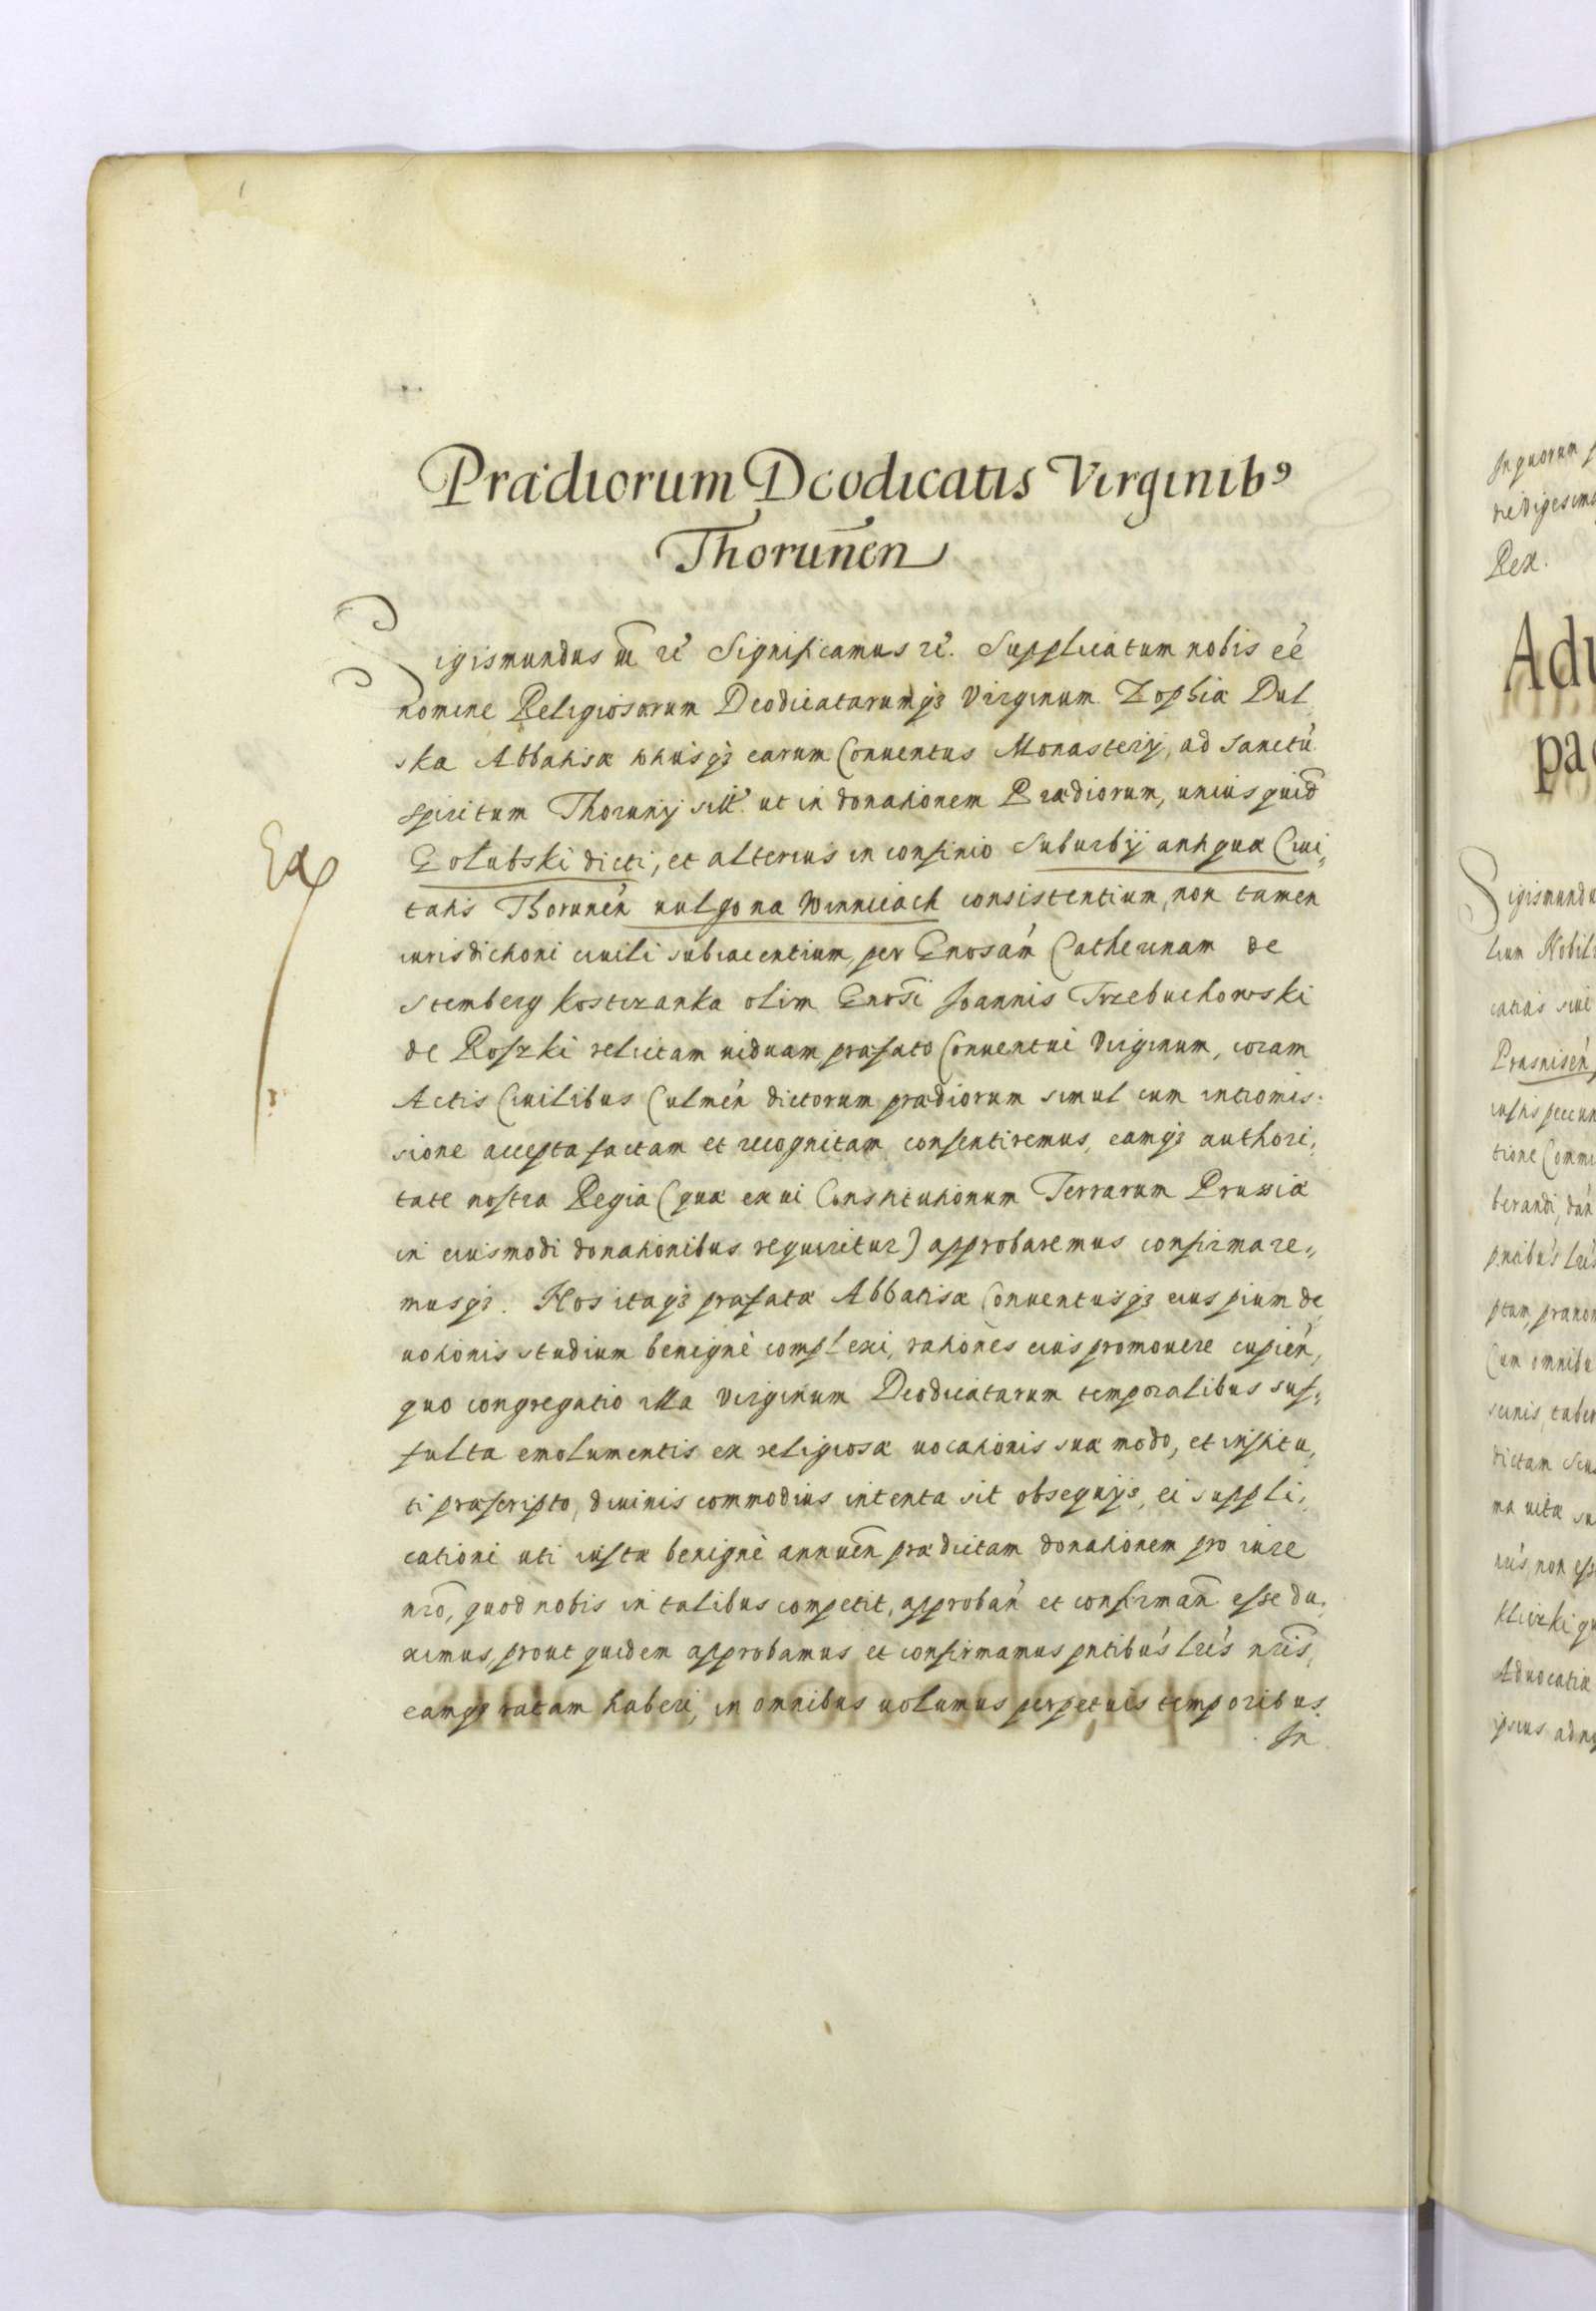 Prædiorum Deodicatis Virginib9
Thorun̄en
Sigismundus III rē Significamus rē. Supplicatum nobis eē
nomine Religiosorum Deodicatarumq3 Virginum Zophiæ Dul
ska Abbatisæ totiusq3 earum Conuentus Monasterij, ad Sanctū
spiritum Thorunij ut in donationem Prædiorum, unius quid̄
Golubski dicti, et alterius in confinio Suburbij antiquæ Ciui„
tatis Thorunēn uulgo na Winnicach consistentium, non tamen
iurisdictioni ciuili subiacentium, per Gnosam̄ Catherinam de
Stemberg Kosterzanka olim Gnosi Joannis Trzebuchowski
de Roszki relictam uiduam præfato Conuentui Virginum, coram
Actis Ciuilibus Culmēn dictorum prædiorum simul cum intromis„
sione accepta factam et recognitam consentiremus, eamq3 authori„
tate nostra Regia (quæ ex ui Constitutionum Terrarum Prussiæ
in eiusmodi donationibus requiritur) approbaremus confirmare„
musq3. Nos itaq3 præfatæ Abbatisæ Conuentusq3 eius pium de
uotionis studium benignè complexi, rationes eius promouere cupiēn,
quo congregatio illa Virginum Deodicatarum temporalibus suf„
fulta emolumentis ex religiosæ uocationis suæ modo, et institu„
ti præscripto, diuinis commodius intenta sit obsequijs, ei suppli„
cationi uti iustæ benignè annuēn prædictam donationem pro iure
nrō, quod nobis in talibus competit, approbān et confirmān esse du„
ximus, prout quidem approbamus et confirmamus pntibūs lrīs nrīs,
eamq3 ratam haberi, in omnibus uolumus perpetuis temporibus.
In
Ex
In quorum
die Vigesima
Rex.
Adu
pa
Sigismundu
lium Nobil
Prasnisēn,
tione Commi
Cum omnibu
dictam
ma uitæ su
Aduocatiæ
ipsius